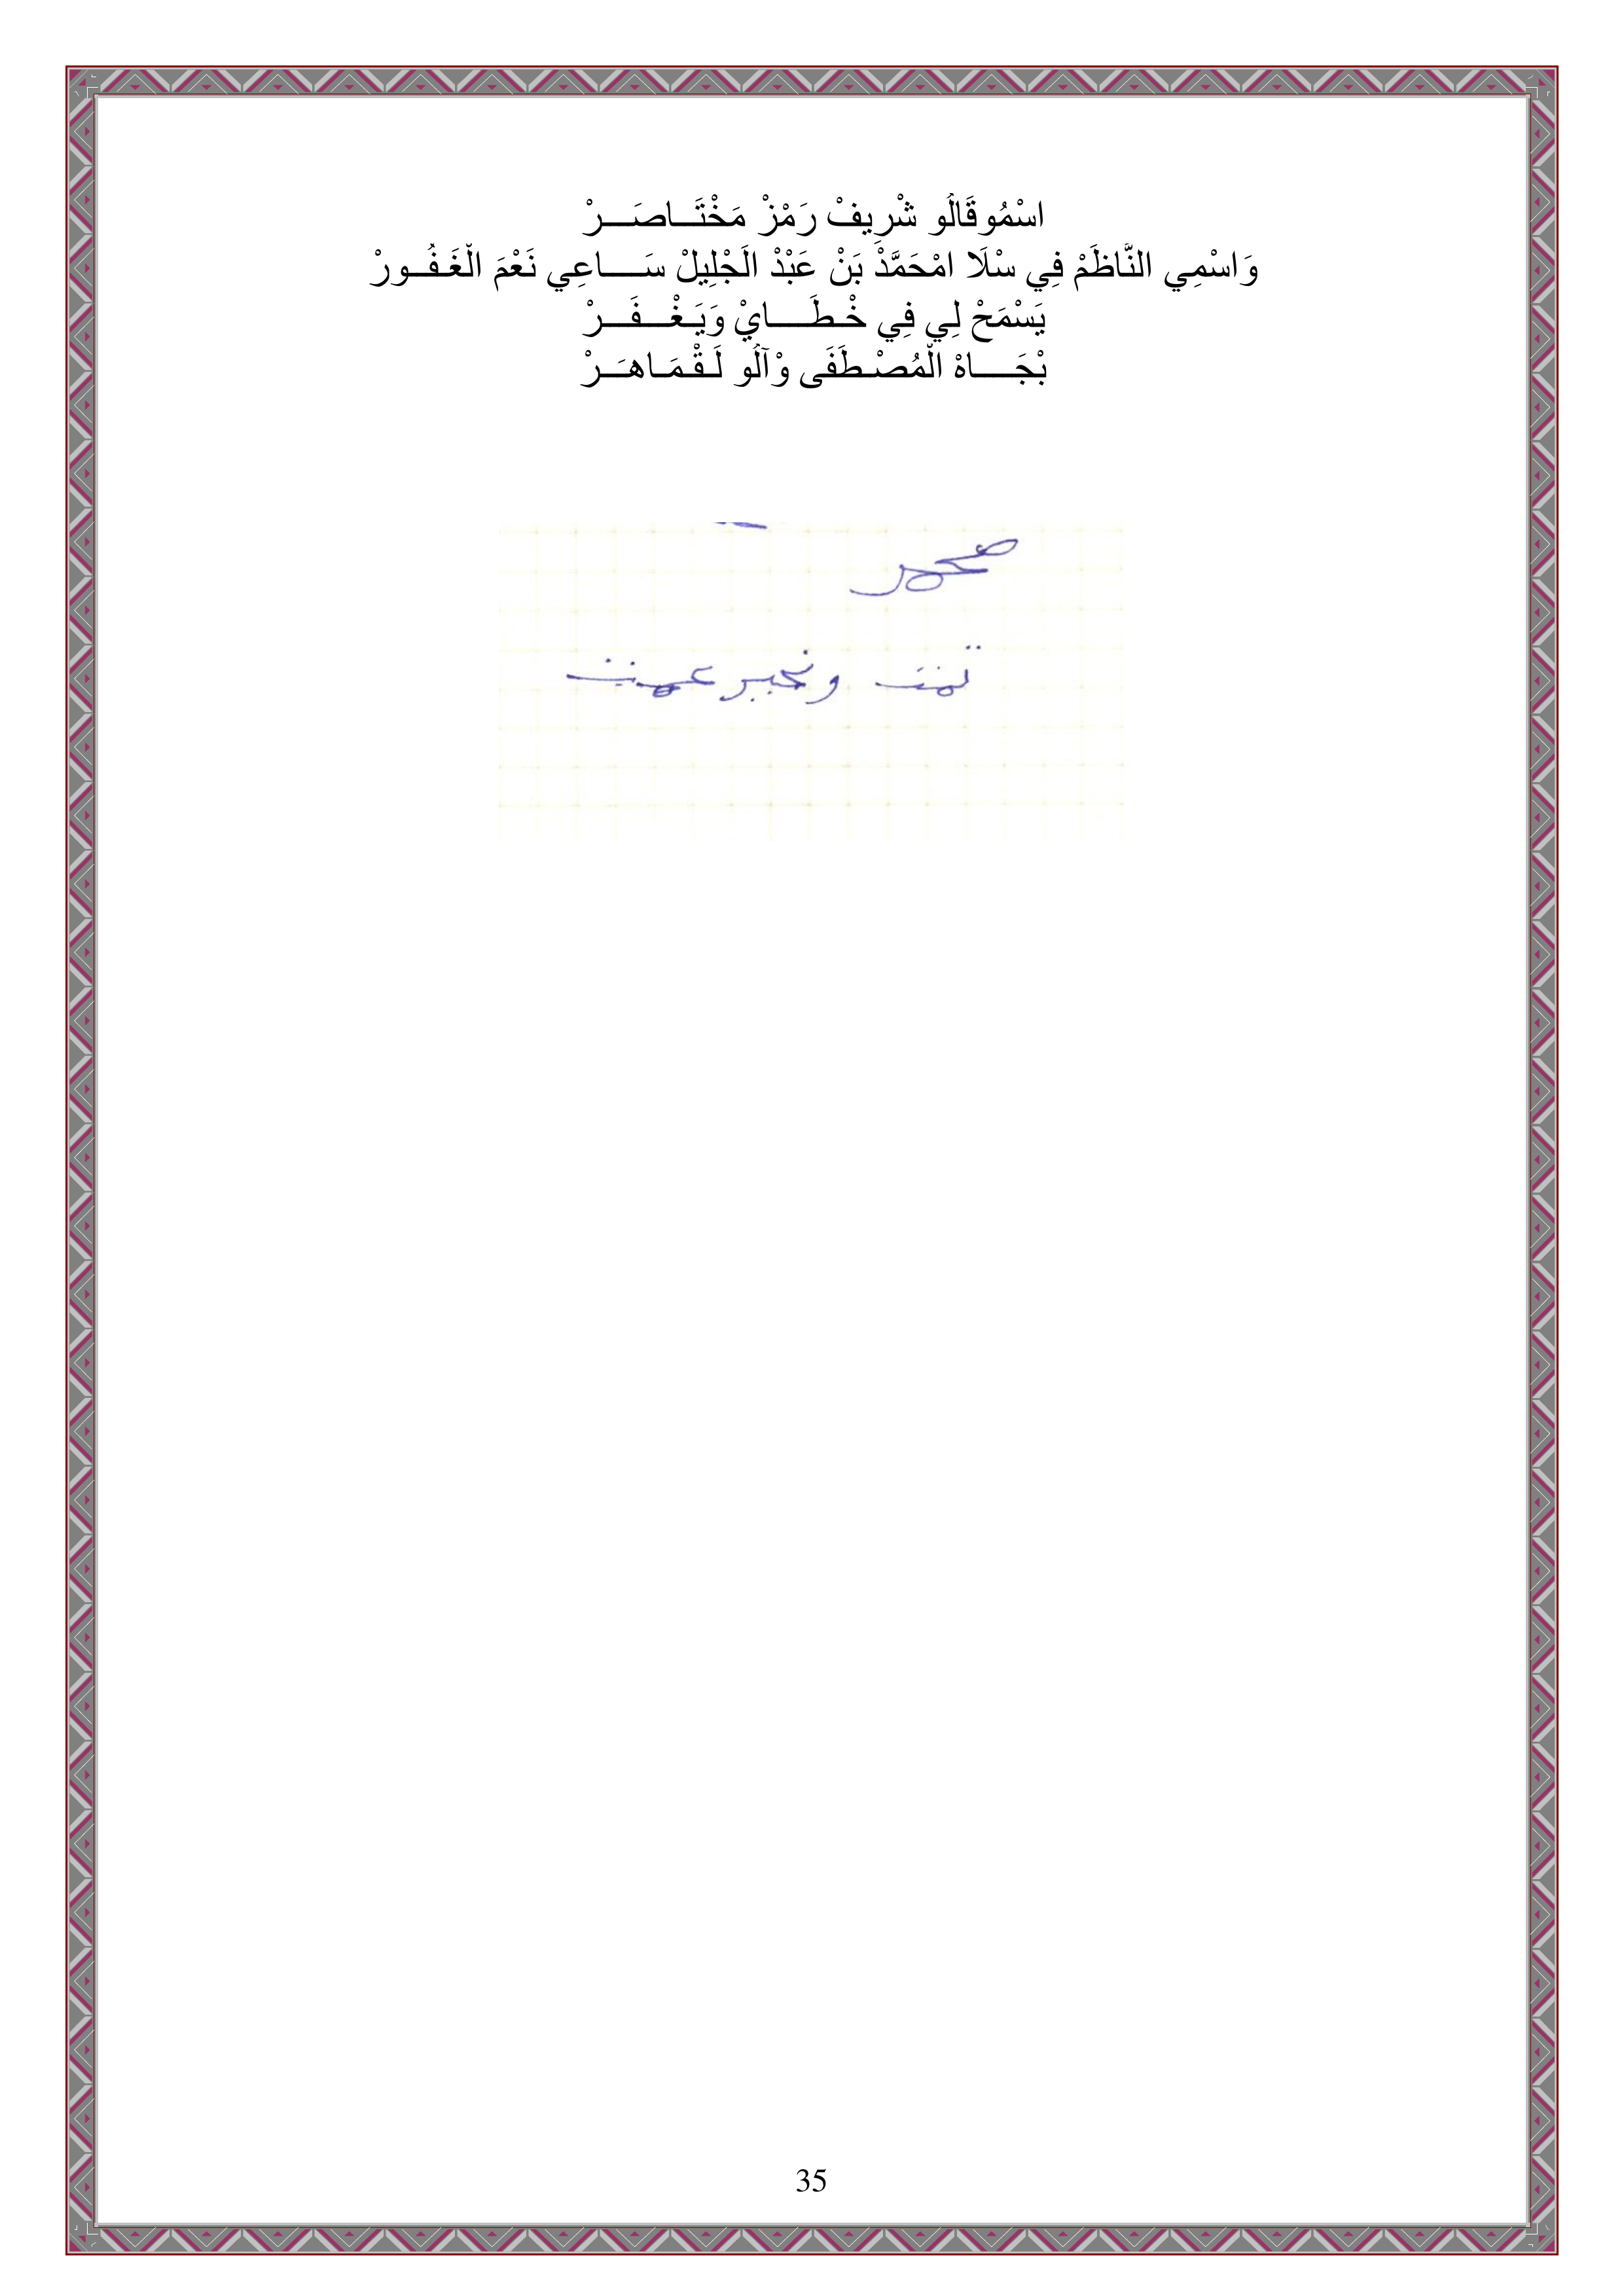 اسْمُوقَالُو شْرِيفْ رَمْزْ مَخْتَـاصَـرْ
وَاسْمِي النَّاظَمْ فِي سْلَا امْحَمَّدْ بَنْ عَبْدْ الَجْلِيلْ سَـاعِي نَعْمَ الّغَـفُـورْ
يَسْمَحْ لِي فِي خْـطَـايْ وَيَـغْـفَـرْ
بْجَـاهْ الّمُصْـطَفَى وْآلُو لَـقْـمَـاهَـرْ
تمت وبخير عمت
35